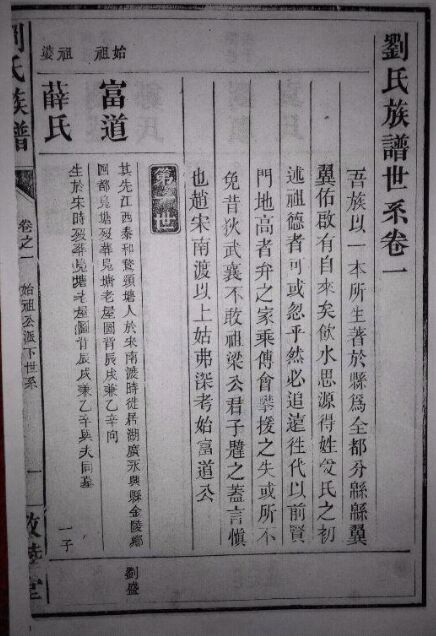 劉氏族譜世系卷一
吾族以一本所生著於縣爲全都分縣縣翼
翼佑啟有自來矣飲水思源得姓受氏之初
述祖德者可或忽乎然必追遠徃代以前賢
門地高者弁之家乘傳會攀援之失或所不
免昔狄武襄不敢祖梁公君子韙之蓋言愼
也趙宋南渡以上姑弗深考始富道公
第一世
始祖 富道
其先江西泰和鵞頸塘人於宋南渡時徙居湖廣永興縣金陵鄉
四都凫塘歿葬凫塘老屋圖背辰戌兼乙辛向
祖婆 薛氏
生於宋時歿葬凫塘老屋圖背辰戌兼乙辛與夫同墓
一子
劉盛
劉氏族譜
卷之一
始祖公派下世系
一
敦睦堂